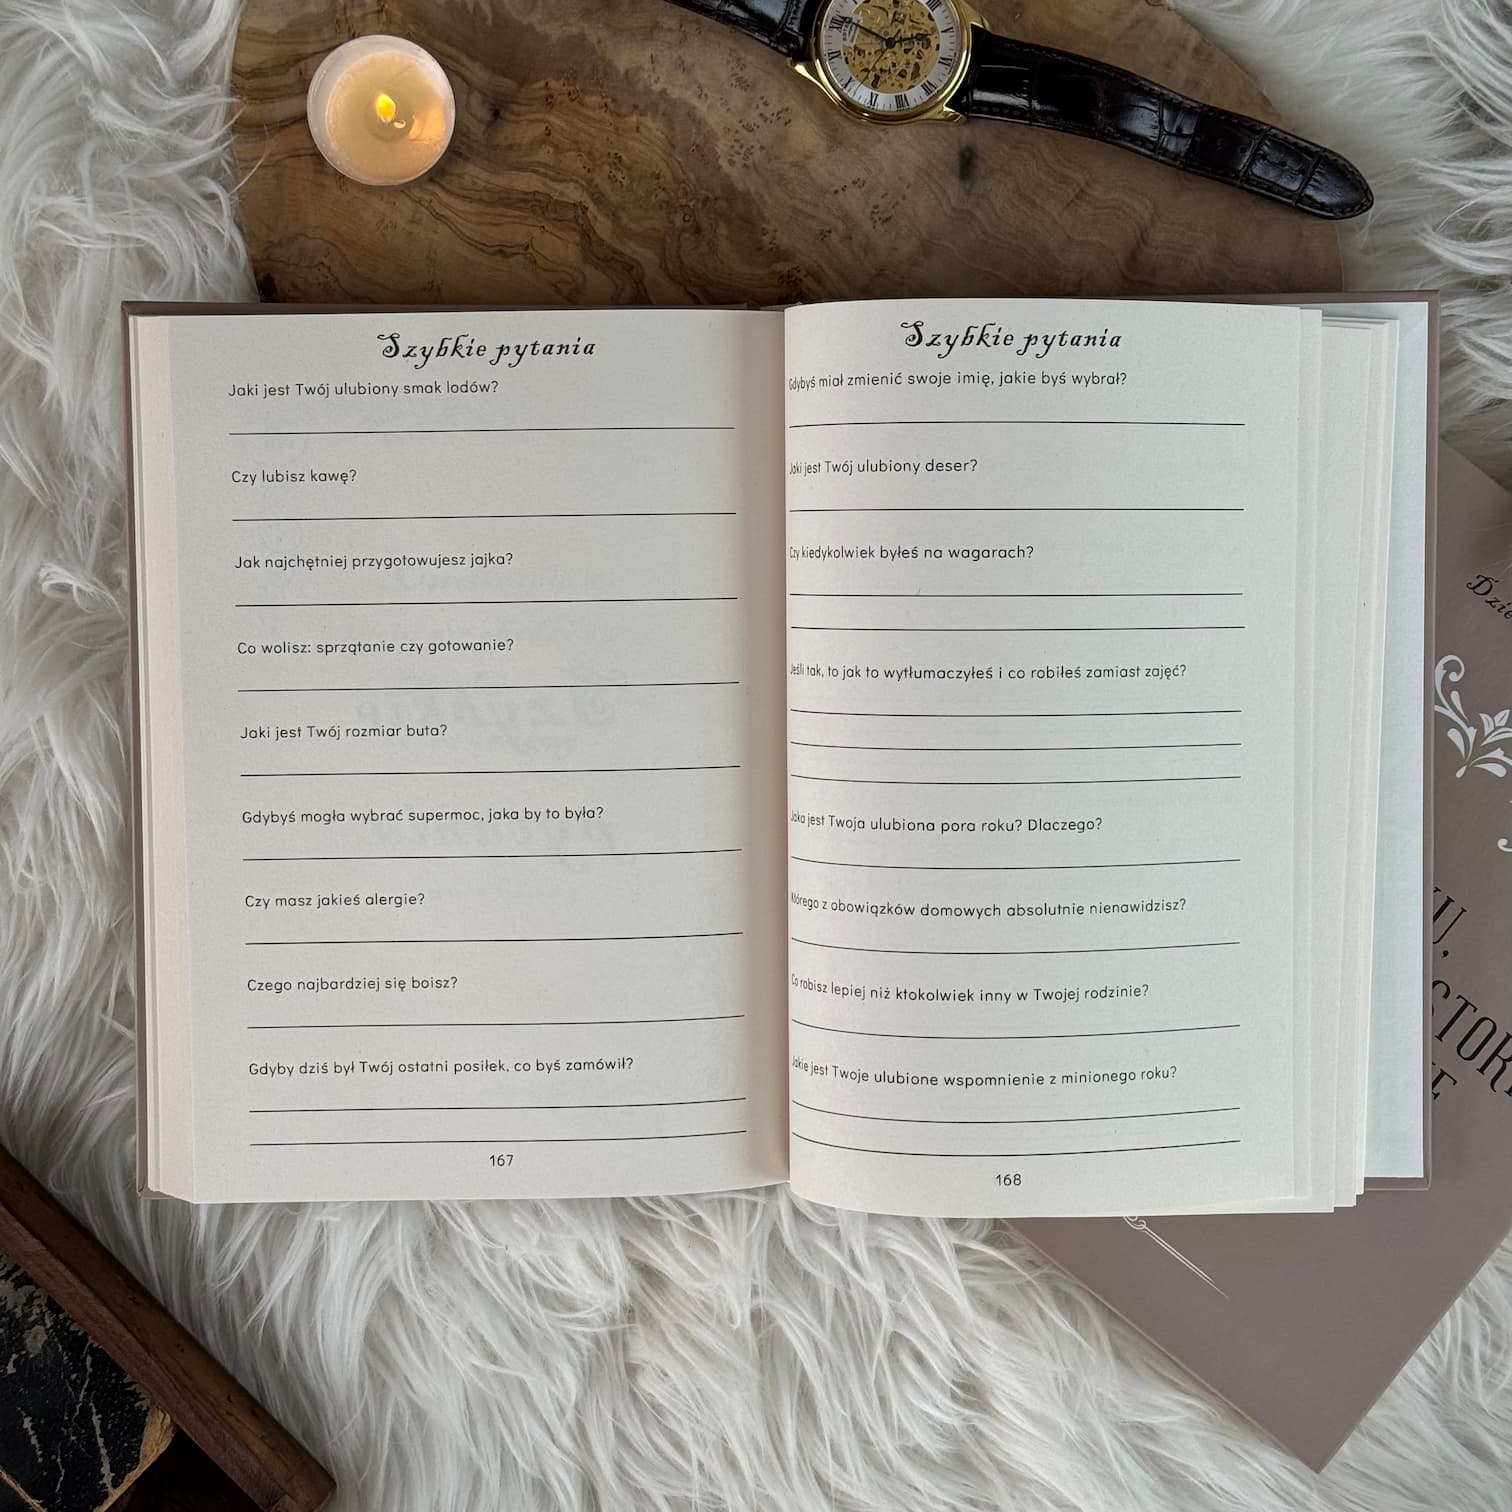 Szybkie pytania
Jaki jest Twój ulubiony smak lodów?
Czy lubisz kawę?
Jak najchętniej przygotowujesz jajka?
Co wolisz: sprzątanie czy gotowanie?
Jaki jest Twój rozmiar buta?
Gdybyś mogła wybrać supermoc, jaka by to była?
Czy masz jakieś alergie?
Czego najbardziej się boisz?
Gdyby dziś był Twój ostatni posiłek, co byś zamówił?
167
Szybkie pytania
Gdybyś miał zmienić swoje imię, jakie byś wybrał?
Jaki jest Twój ulubiony deser?
Czy kiedykolwiek byłeś na wagarach?
Jeśli tak, to jak to wytłumaczyłeś i co robiłeś zamiast zajęć?
Jaka jest Twoja ulubiona pora roku? Dlaczego?
Którego z obowiązków domowych absolutnie nienawidzisz?
Co robisz lepiej niż ktokolwiek inny w Twojej rodzinie?
Jakie jest Twoje ulubione wspomnienie z minionego roku?
168